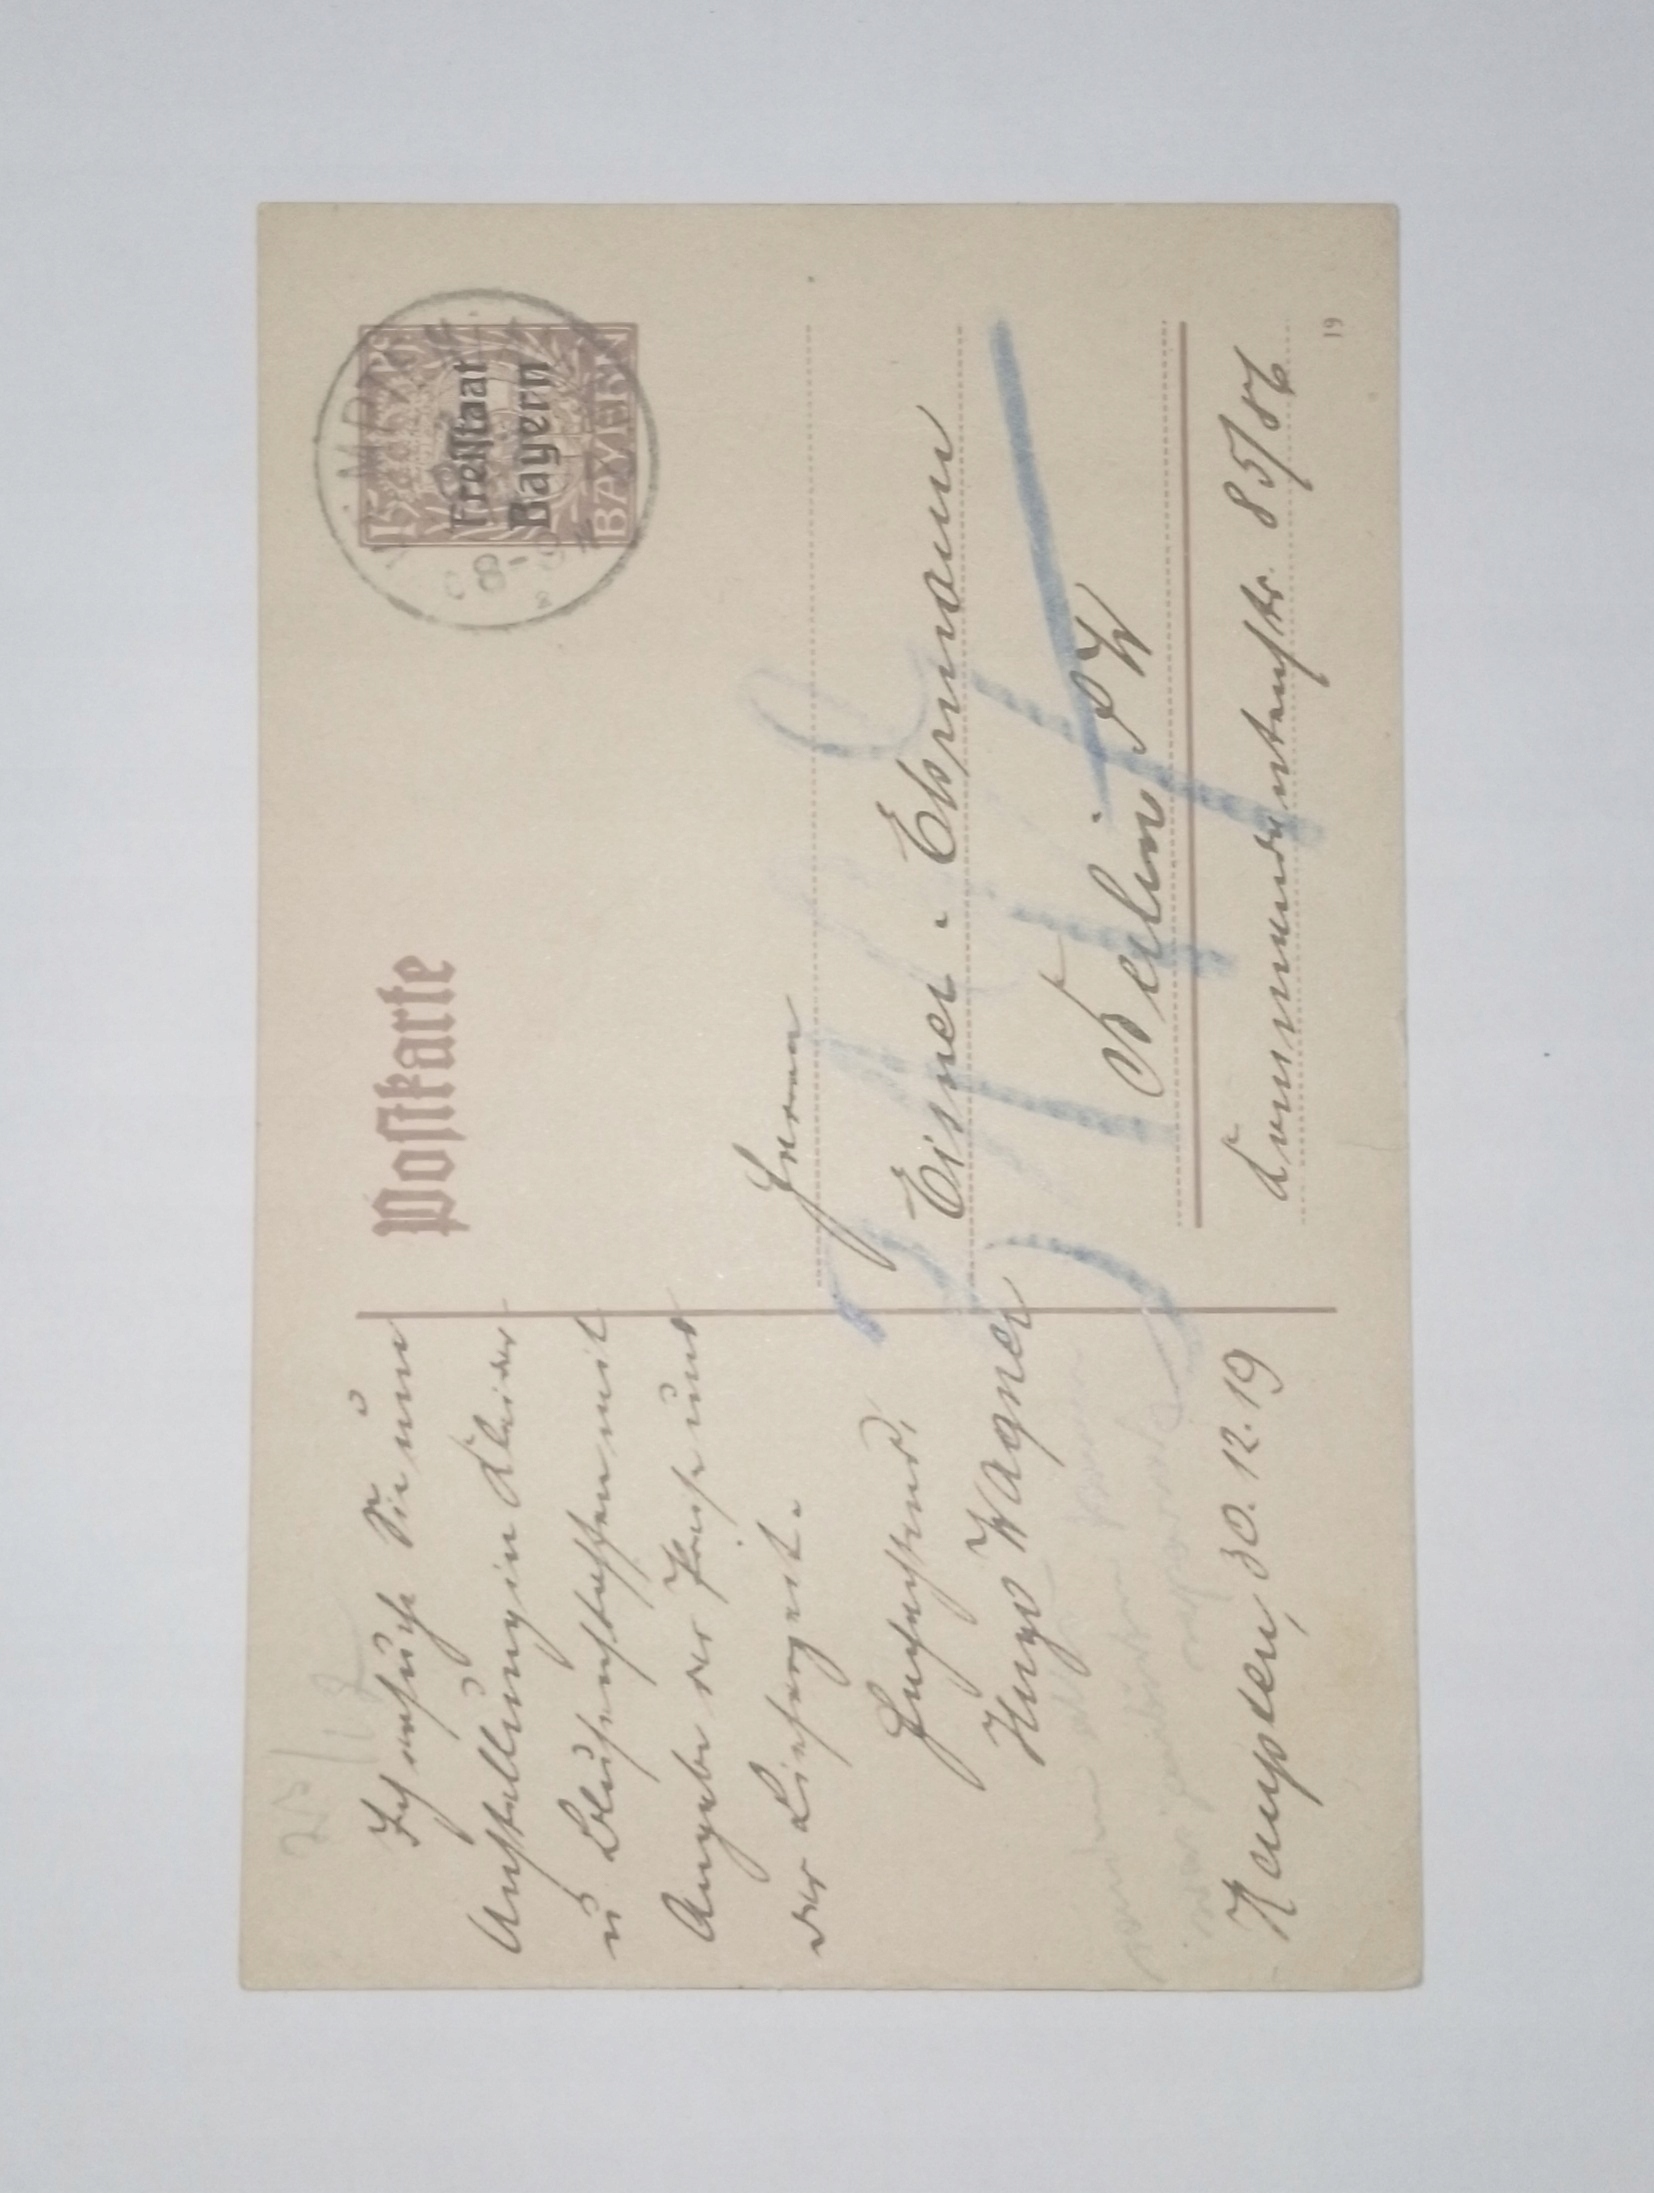 Postkarte
15
Freistaat
Bayern
BAYERN
8-9
25/12
Ich ersuche Sie um
Anstellung in Kleider
u Blusenstoffen mit
Angabe der Preise und
der Lieferzeit.
Hochachtend,
Hugo Wagner
Kempten, 30.12.19
Herrn
Eisner. Ehrmann
Berlin SW
Kommandantenstr. 85/86
19